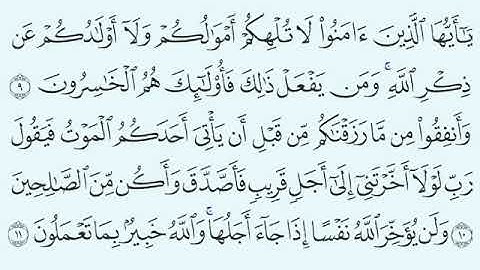 يَـٰٓأَيُّهَا ٱلَّذِينَ ءَامَنُوا۟ لَا تُلْهِكُمْ أَمْوَٰلُكُمْ وَلَآ أَوْلَـٰدُكُمْ عَن
ذِكْرِ ٱللَّهِ ۚ وَمَن يَفْعَلْ ذَٰلِكَ فَأُو۟لَـٰٓئِكَ هُمُ ٱلْخَـٰسِرُونَ ٩
وَأَنفِقُوا۟ مِن مَّا رَزَقْنَـٰكُم مِّن قَبْلِ أَن يَأْتِىَ أَحَدَكُمُ ٱلْمَوْتُ فَيَقُولَ
رَبِّ لَوْلَآ أَخَّرْتَنِىٓ إِلَىٰٓ أَجَلٍ قَرِيبٍ فَأَصَّدَّقَ وَأَكُن مِّنَ ٱلصَّـٰلِحِينَ
١٠ وَلَن يُؤَخِّرَ ٱللَّهُ نَفْسًا إِذَا جَآءَ أَجَلُهَا ۚ وَٱللَّهُ خَبِيرٌۢ بِمَا تَعْمَلُونَ ١١